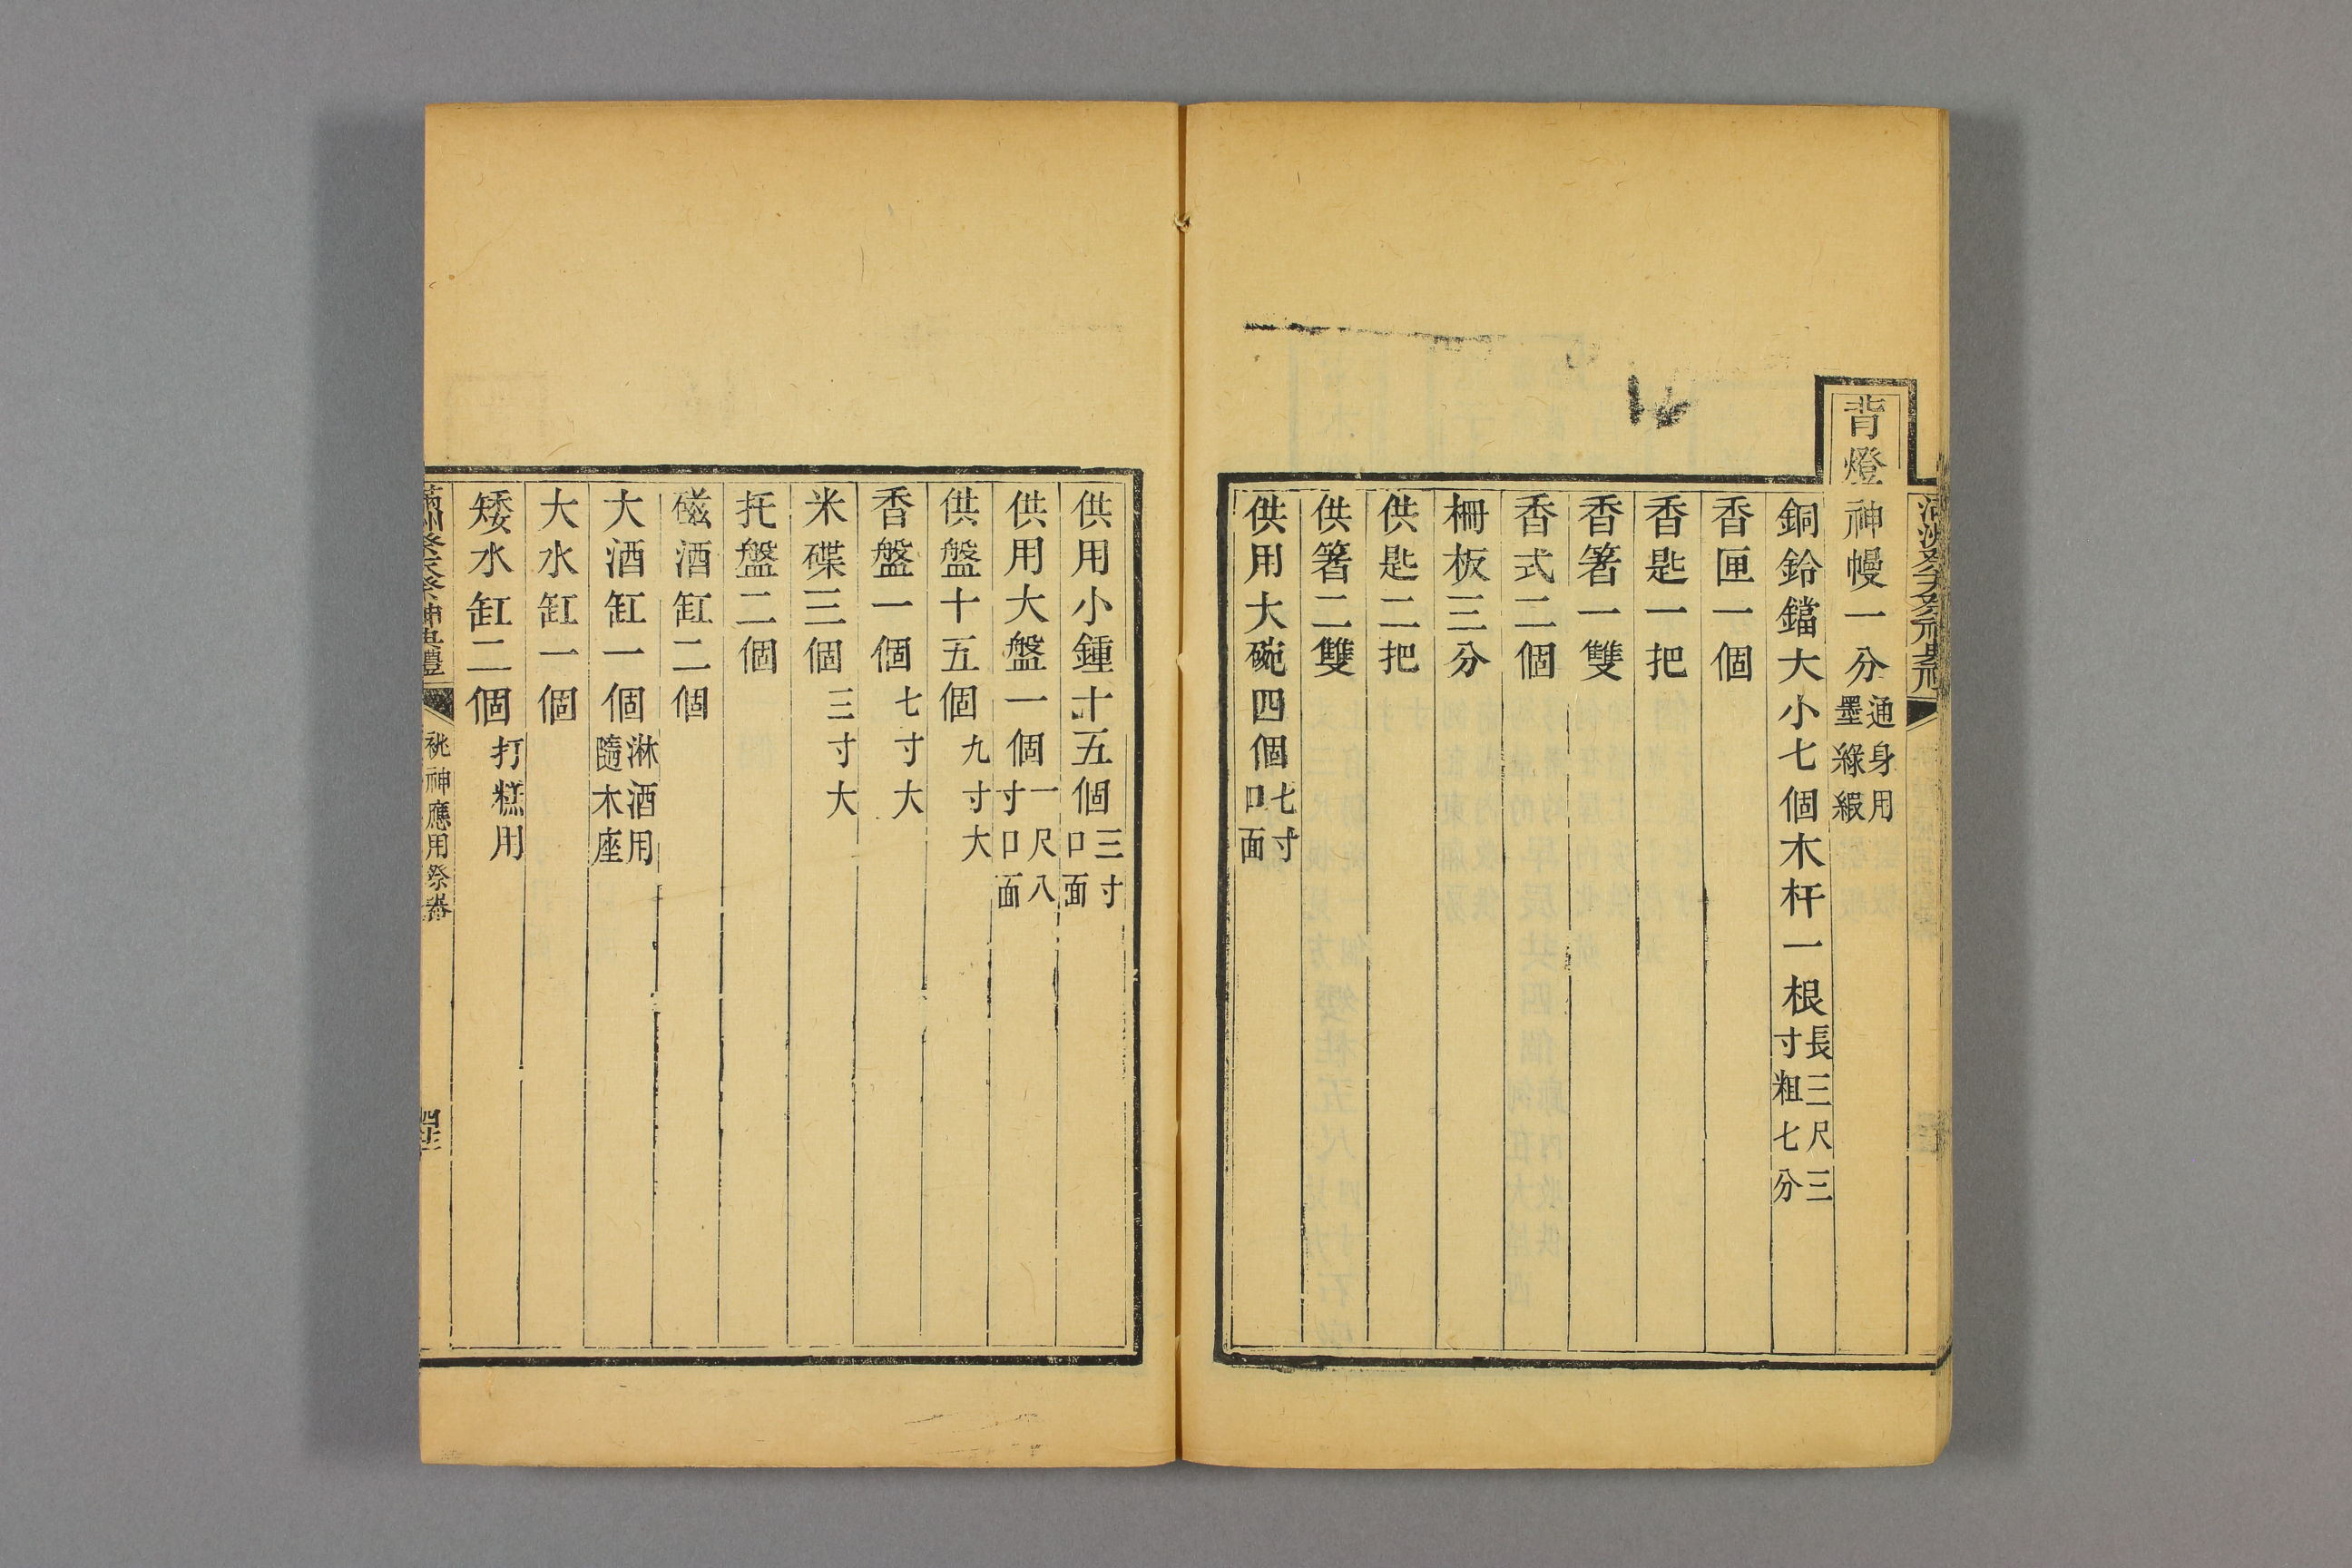 背燈神幔一分通身用墨綠緞
銅鈴鐺大小七個木杆一根長三尺三寸粗七分
香匣一個
香匙一把
香箸一雙
香式二個
柵板三分
供匙二把
供箸二雙
供用大碗四個七寸口面
供用小鍾十五個三寸口面
供用大盤一個一尺八寸口面
供盤十五個九寸大
香盤一個七寸大
米碟三個三寸大
托盤二個
磁酒缸二個
大酒缸一個淋酒用隨木座
大水缸一個
矮水缸二個打糕用
滿洲祭天祭神典禮
祧神應用祭器